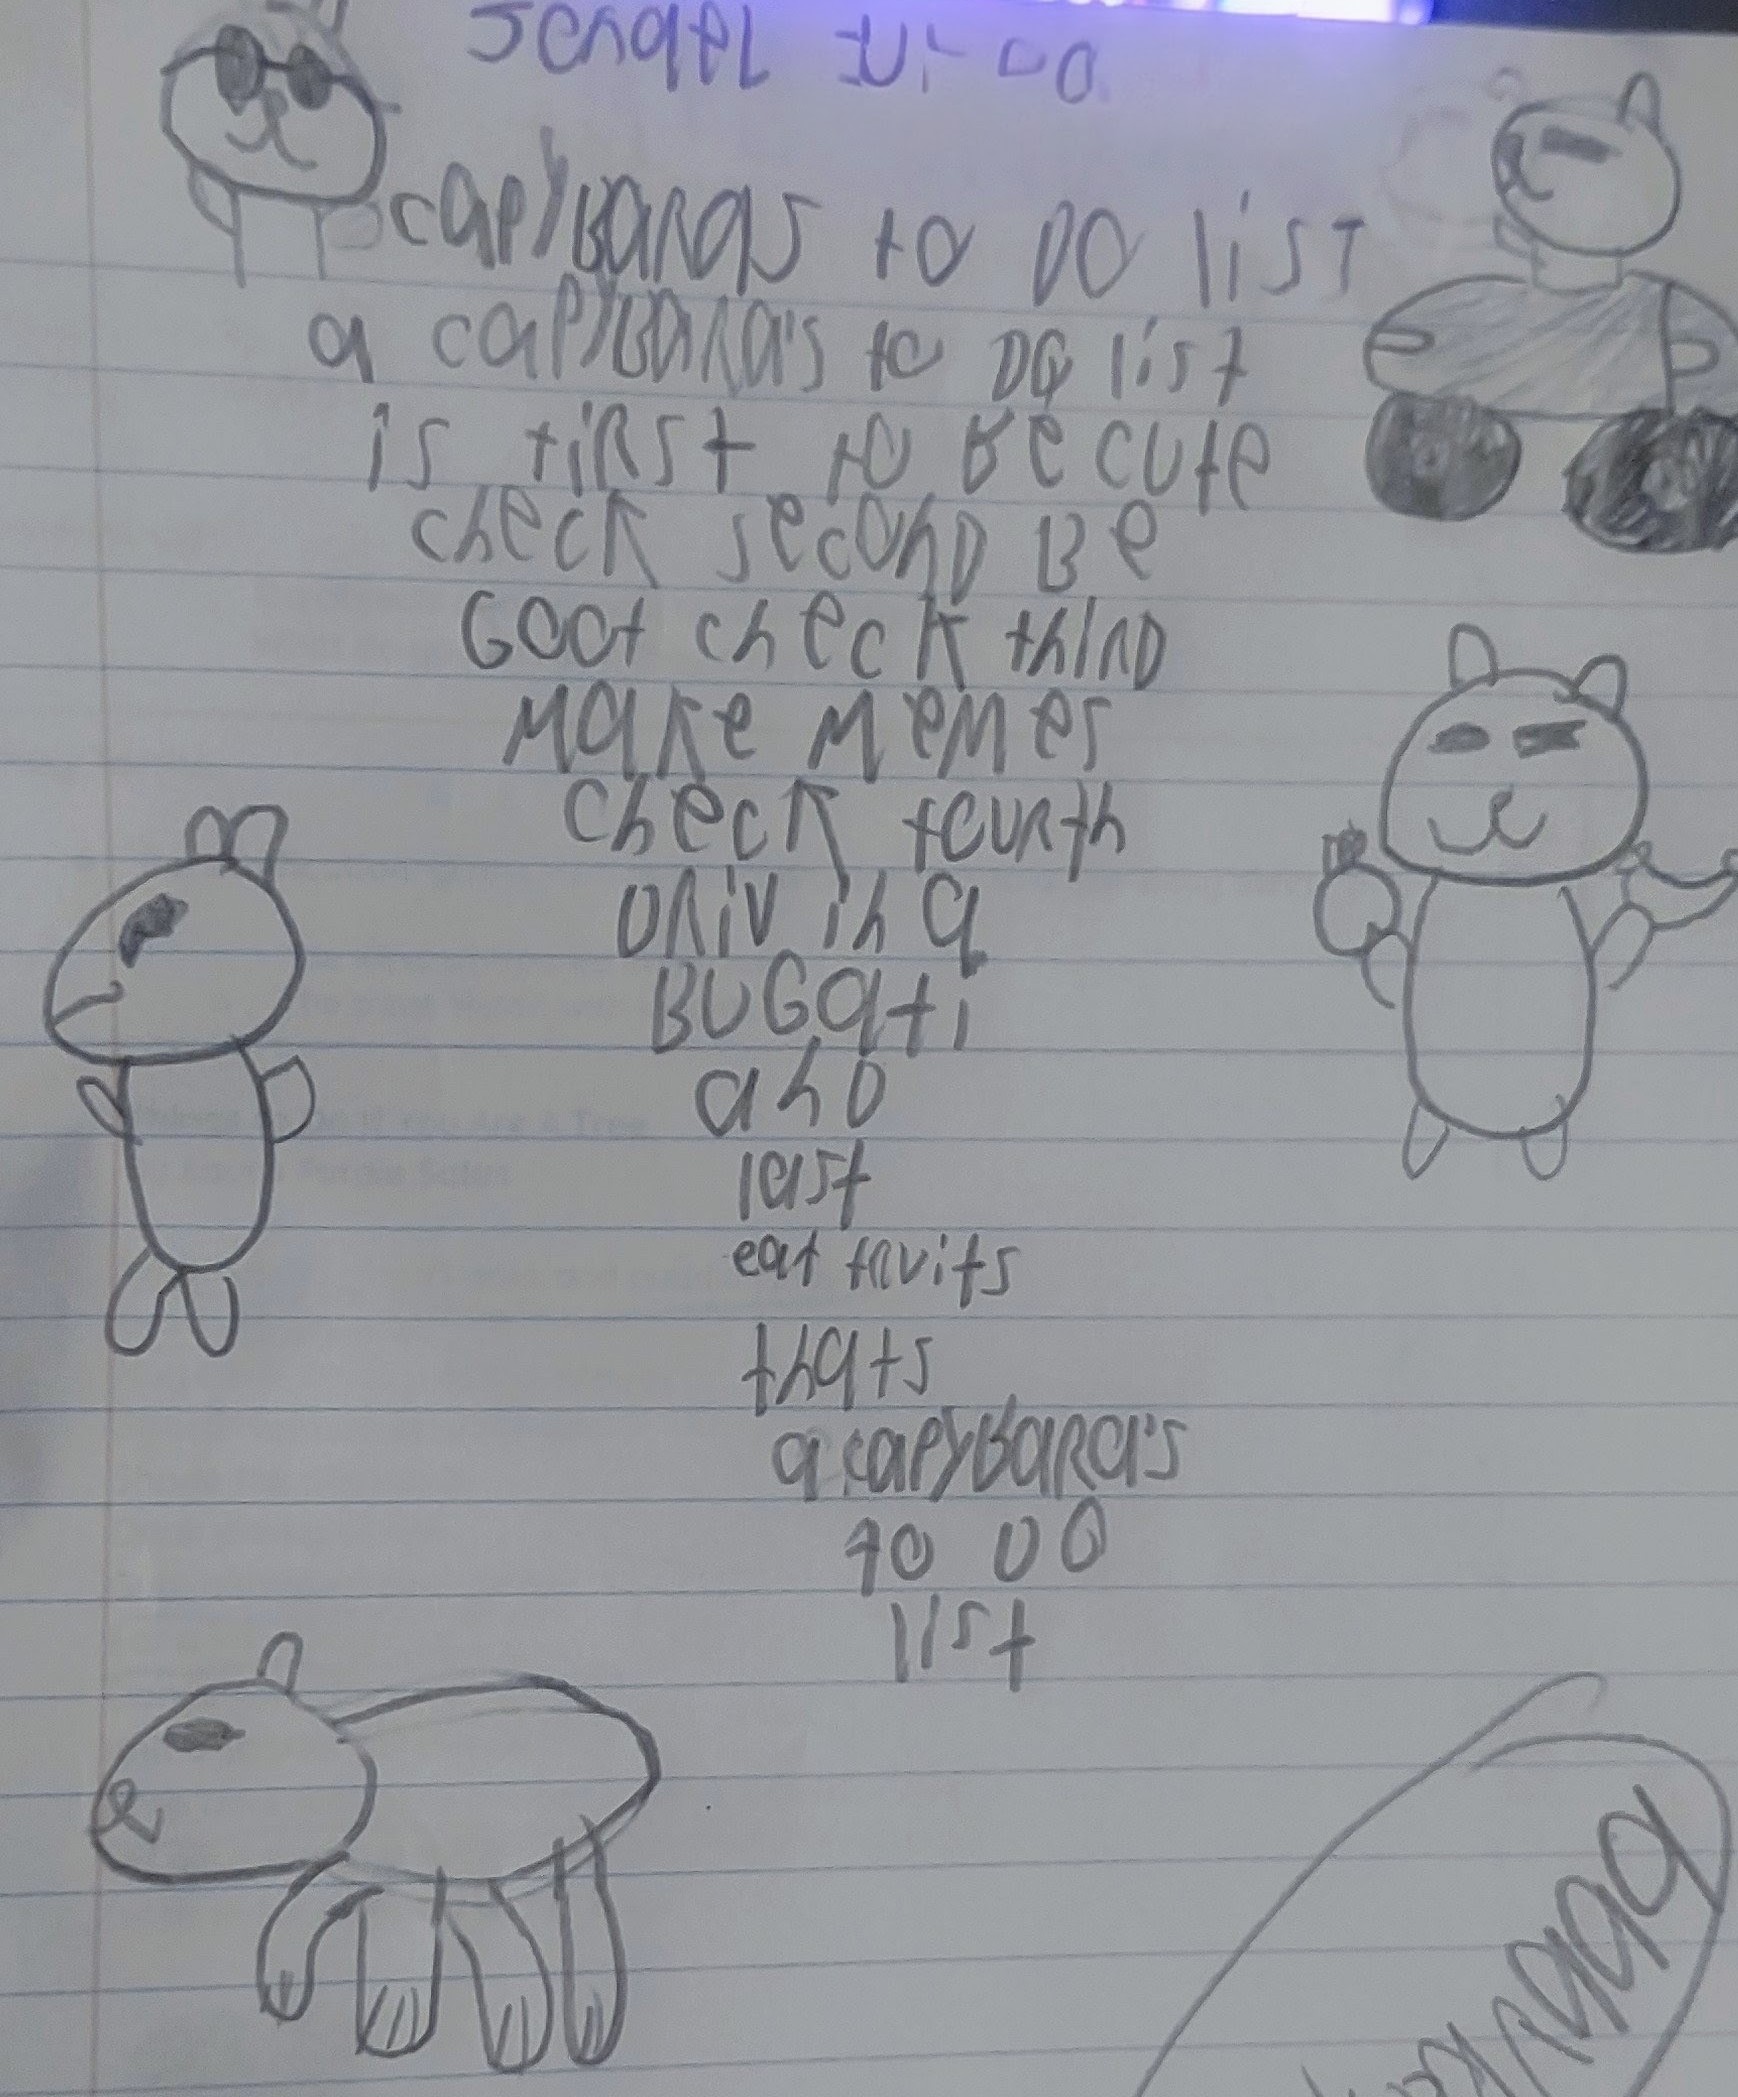 capyBaRas to DO list
a capyBaRa's to DO list
is fiRst to Be cute
check second Be
Goot check thiRD
Make Memes
check fouRth
DRiv in a
BUGati
anD
last
eat fRuits
thats
a capyBaRa's
to DO
list